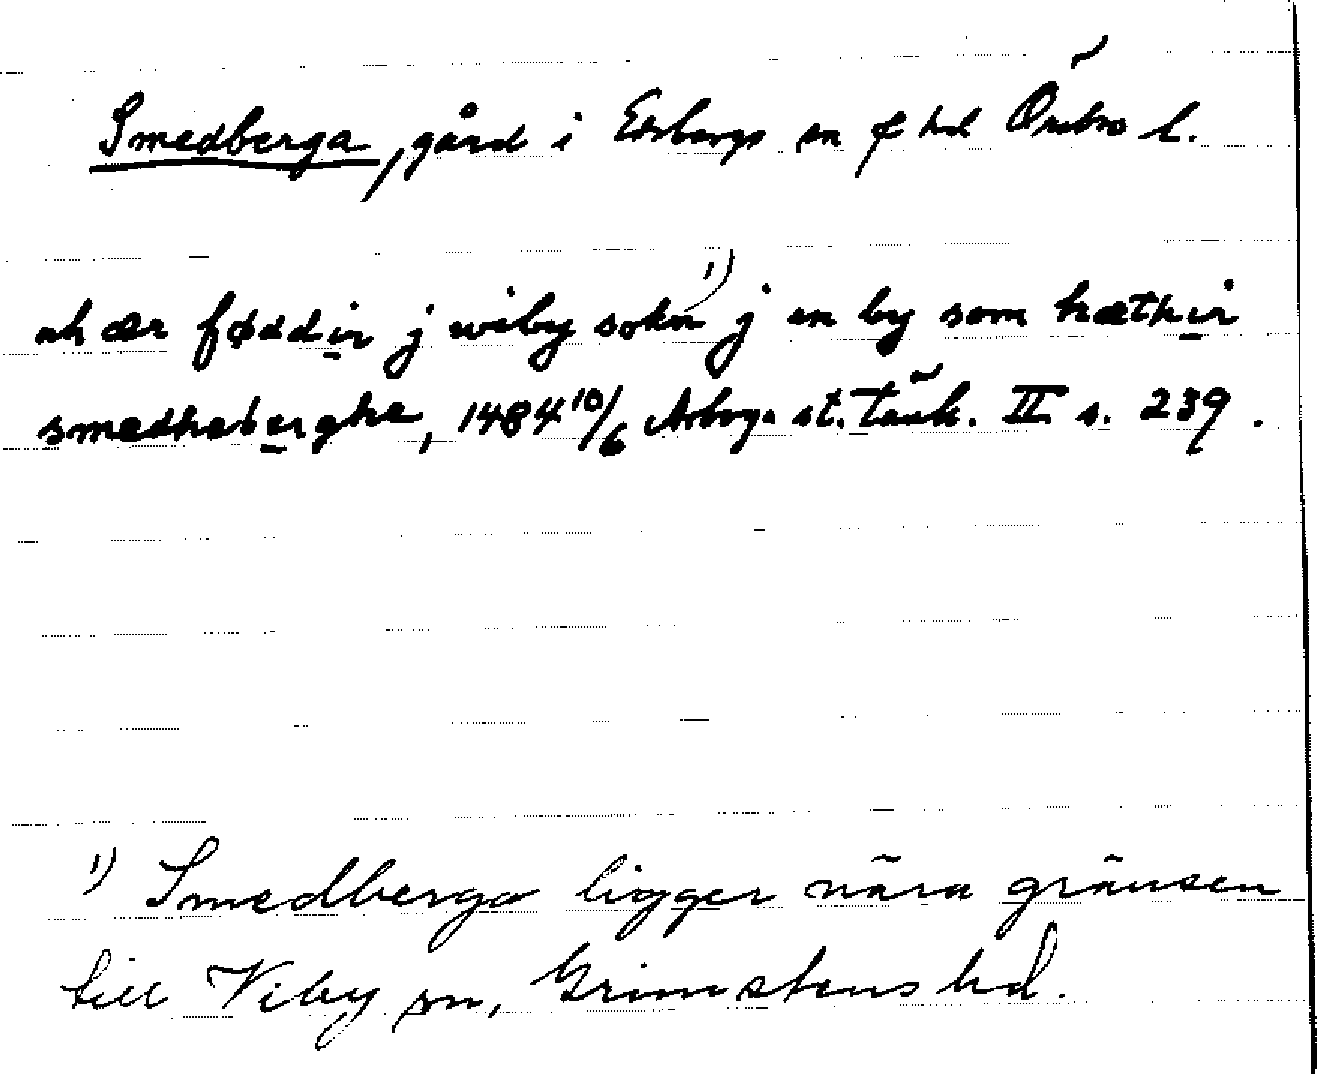 Smedberga, gård i Edsbergs sn o hd Örebro l.
ok ær føddir j wiby sokn 1) j en by som hæthir
smedhaberghe, 1484 10/6 Arboga st. tänk. II s. 239.
1) Smedberga ligger nära gränsen
till Viby sn, Grimstens hd.